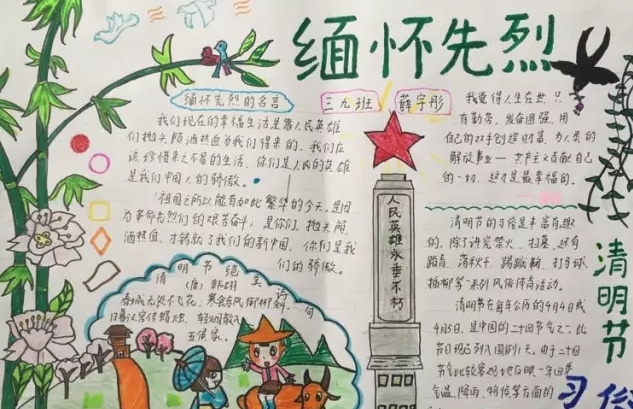 缅怀先烈
缅怀先烈的名言
我们现在的幸福生活是靠人民英雄
们抛头颅洒热血为我们得来的，我们应
该珍惜来之不易的生活，你们是人民的英雄
是我们中国人的骄傲。
祖国之所以能有如此繁华的今天，是因
为革命先烈们的艰苦奋斗；是你们，抛头颅
洒热血，才铸就了我们的新中国，你们是我
们的骄傲。
三九班
薛宇彤
我觉得人生在世，只
有勤劳，发奋图强，用
自己的双手创造财富，为人类的
解放事业——共产主义贡献自己
的一切，这才是最幸福的。
人民英雄永垂不朽
清明节的习俗是丰富有趣
的，除了讲究禁火、扫墓，还有
踏青、荡秋千、踢蹴鞠、打马球、
插柳等一系列风俗体育活动。
清明节在每年公历的4月4或
4月5日，是中国的二十四节气之一，此
节日现已列入国假1天，由于二十四
节气比较客观地反映一年四季
气温、降雨、物候等方面的
清明节
习俗
清明节绝美诗句
（唐）韩翃
春城无处不飞花，寒食东风御柳斜。
日暮汉宫传蜡烛，轻烟散入
五侯家。